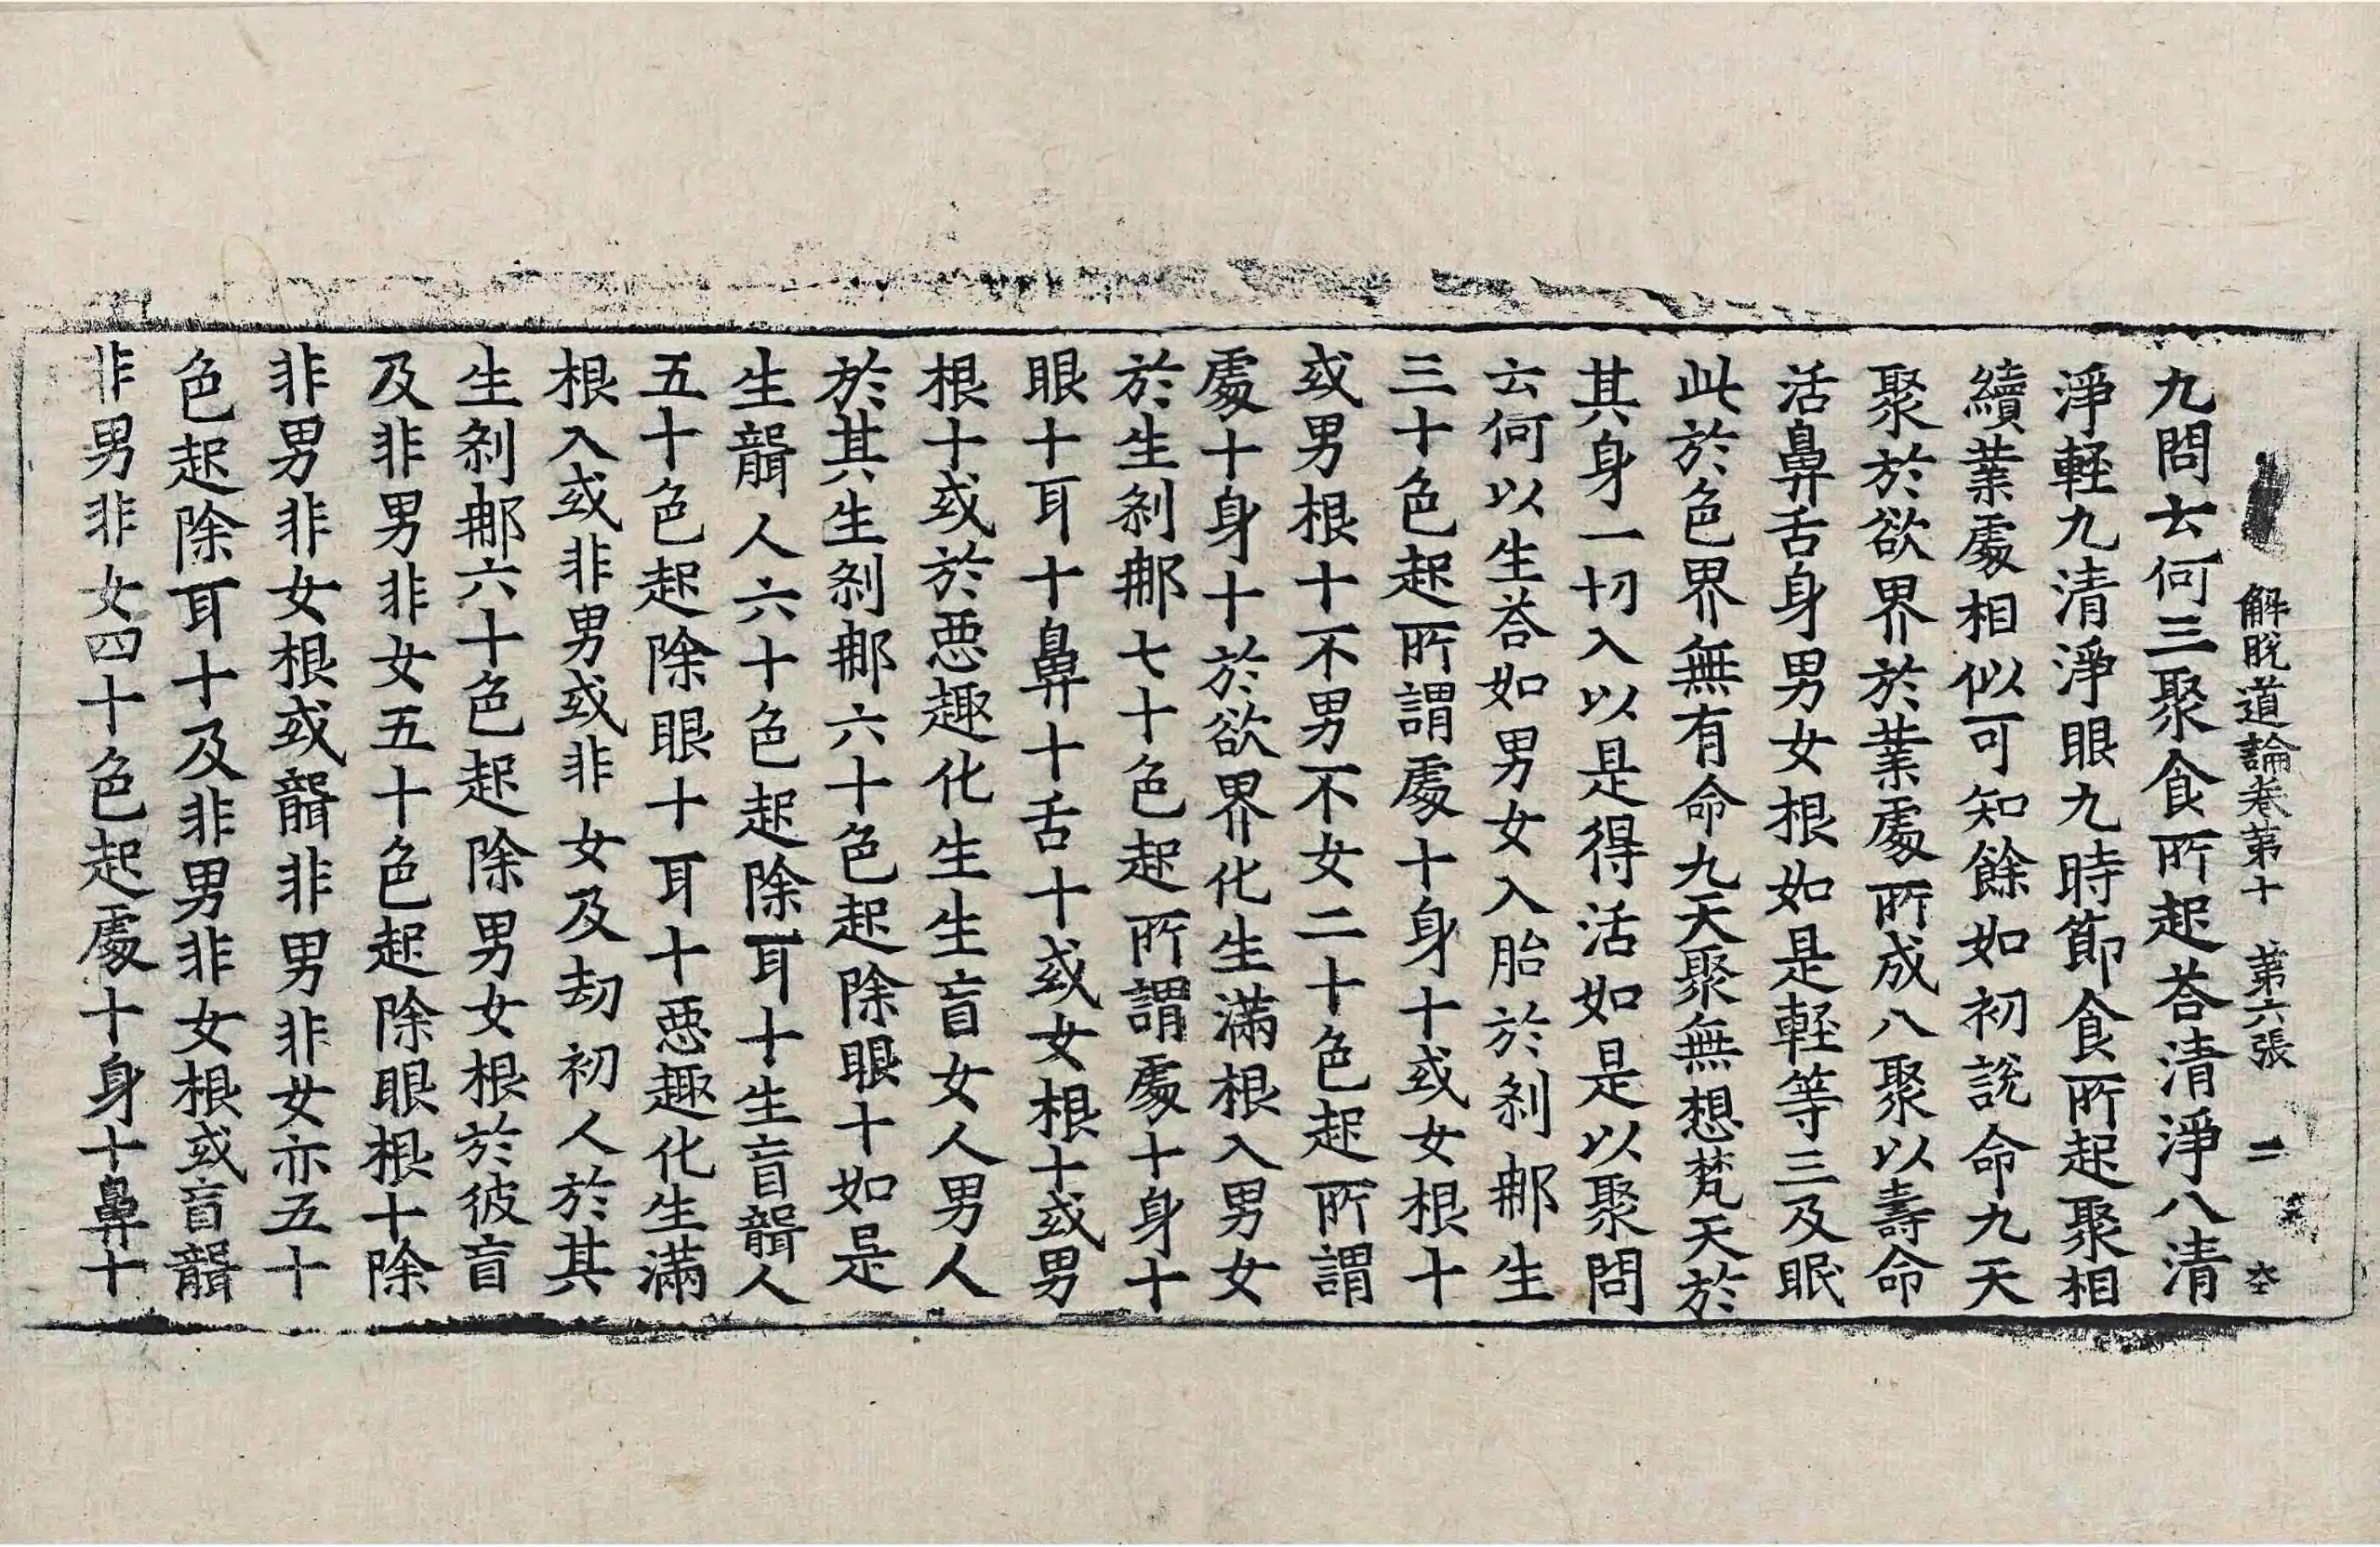 解脫道論卷第十　第六張　二
九問云何三聚食所起荅清淨八清
淨輕九清淨眼九時節食所起聚相
續業處相似可知餘如初說命九天
聚於欲界於業處所成八聚以壽命
活鼻舌身男女根如是輕等三及眠
此於色界無有命九天聚無想梵天於
其身一切入以是得活如是以聚問
云何以生荅如男女入胎於剎那生
三十色起所謂處十身十或女根十
或男根十不男不女二十色起所謂
處十身十於欲界化生滿根入男女
於生剎那七十色起所謂處十身十
眼十耳十鼻十舌十或女根十或男
根十或於惡趣化生生盲女人男人
於其生剎那六十色起除眼十如是
生聾人六十色起除耳十生盲聾人
五十色起除眼十耳十惡趣化生滿
根入或非男或非女及劫初人於其
生剎那六十色起除男女根於彼盲
及非男非女五十色起除眼根十除
非男非女根或聾非男非女亦五十
色起除耳十及非男非女根或盲聾
非男非女四十色起處十身十鼻十